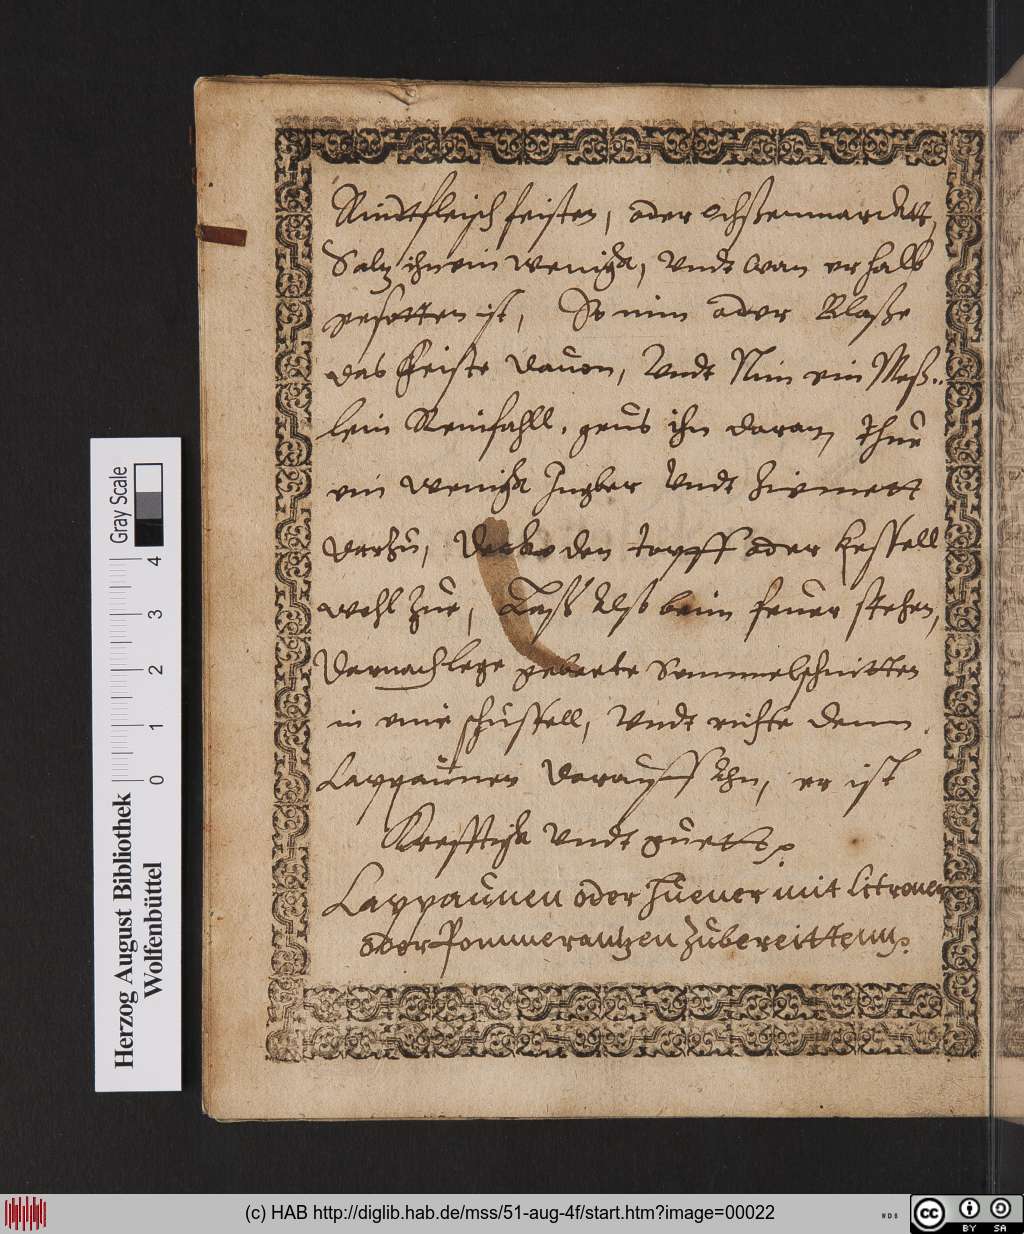 Rindtfleisch feisten, oder Ochßenmarckett,
Saltz ihn ein weenigk, Undt wan er halb
gesotten ist, So nim oder Blaße
das Feiste dauon, Undt Nim ein Meß..
lein Reinfahll, geus ihn daran, thue
ein weenigk Ingber Undt Zimmett
darzu, decke den topff oder Kessell
wohl zue, Laß Alß beim feuer stehen,
Darnach lege gebeete Semmelschnitten
in eine schussell, Undt richte denn
Cappaunen darauff Ahn, er ist
Krefftigk Undt guett
Cappaunen oder Huener mit Citronen
oder Pommerantzen Zubereittenn
Herzog August Bibliothek
Wolfenbüttel
Gray Scale
0 1 2 3 4
(c) HAB http://diglib.hab.de/mss/51-aug-4f/start.htm?image=00022
WDB
cc BY SA